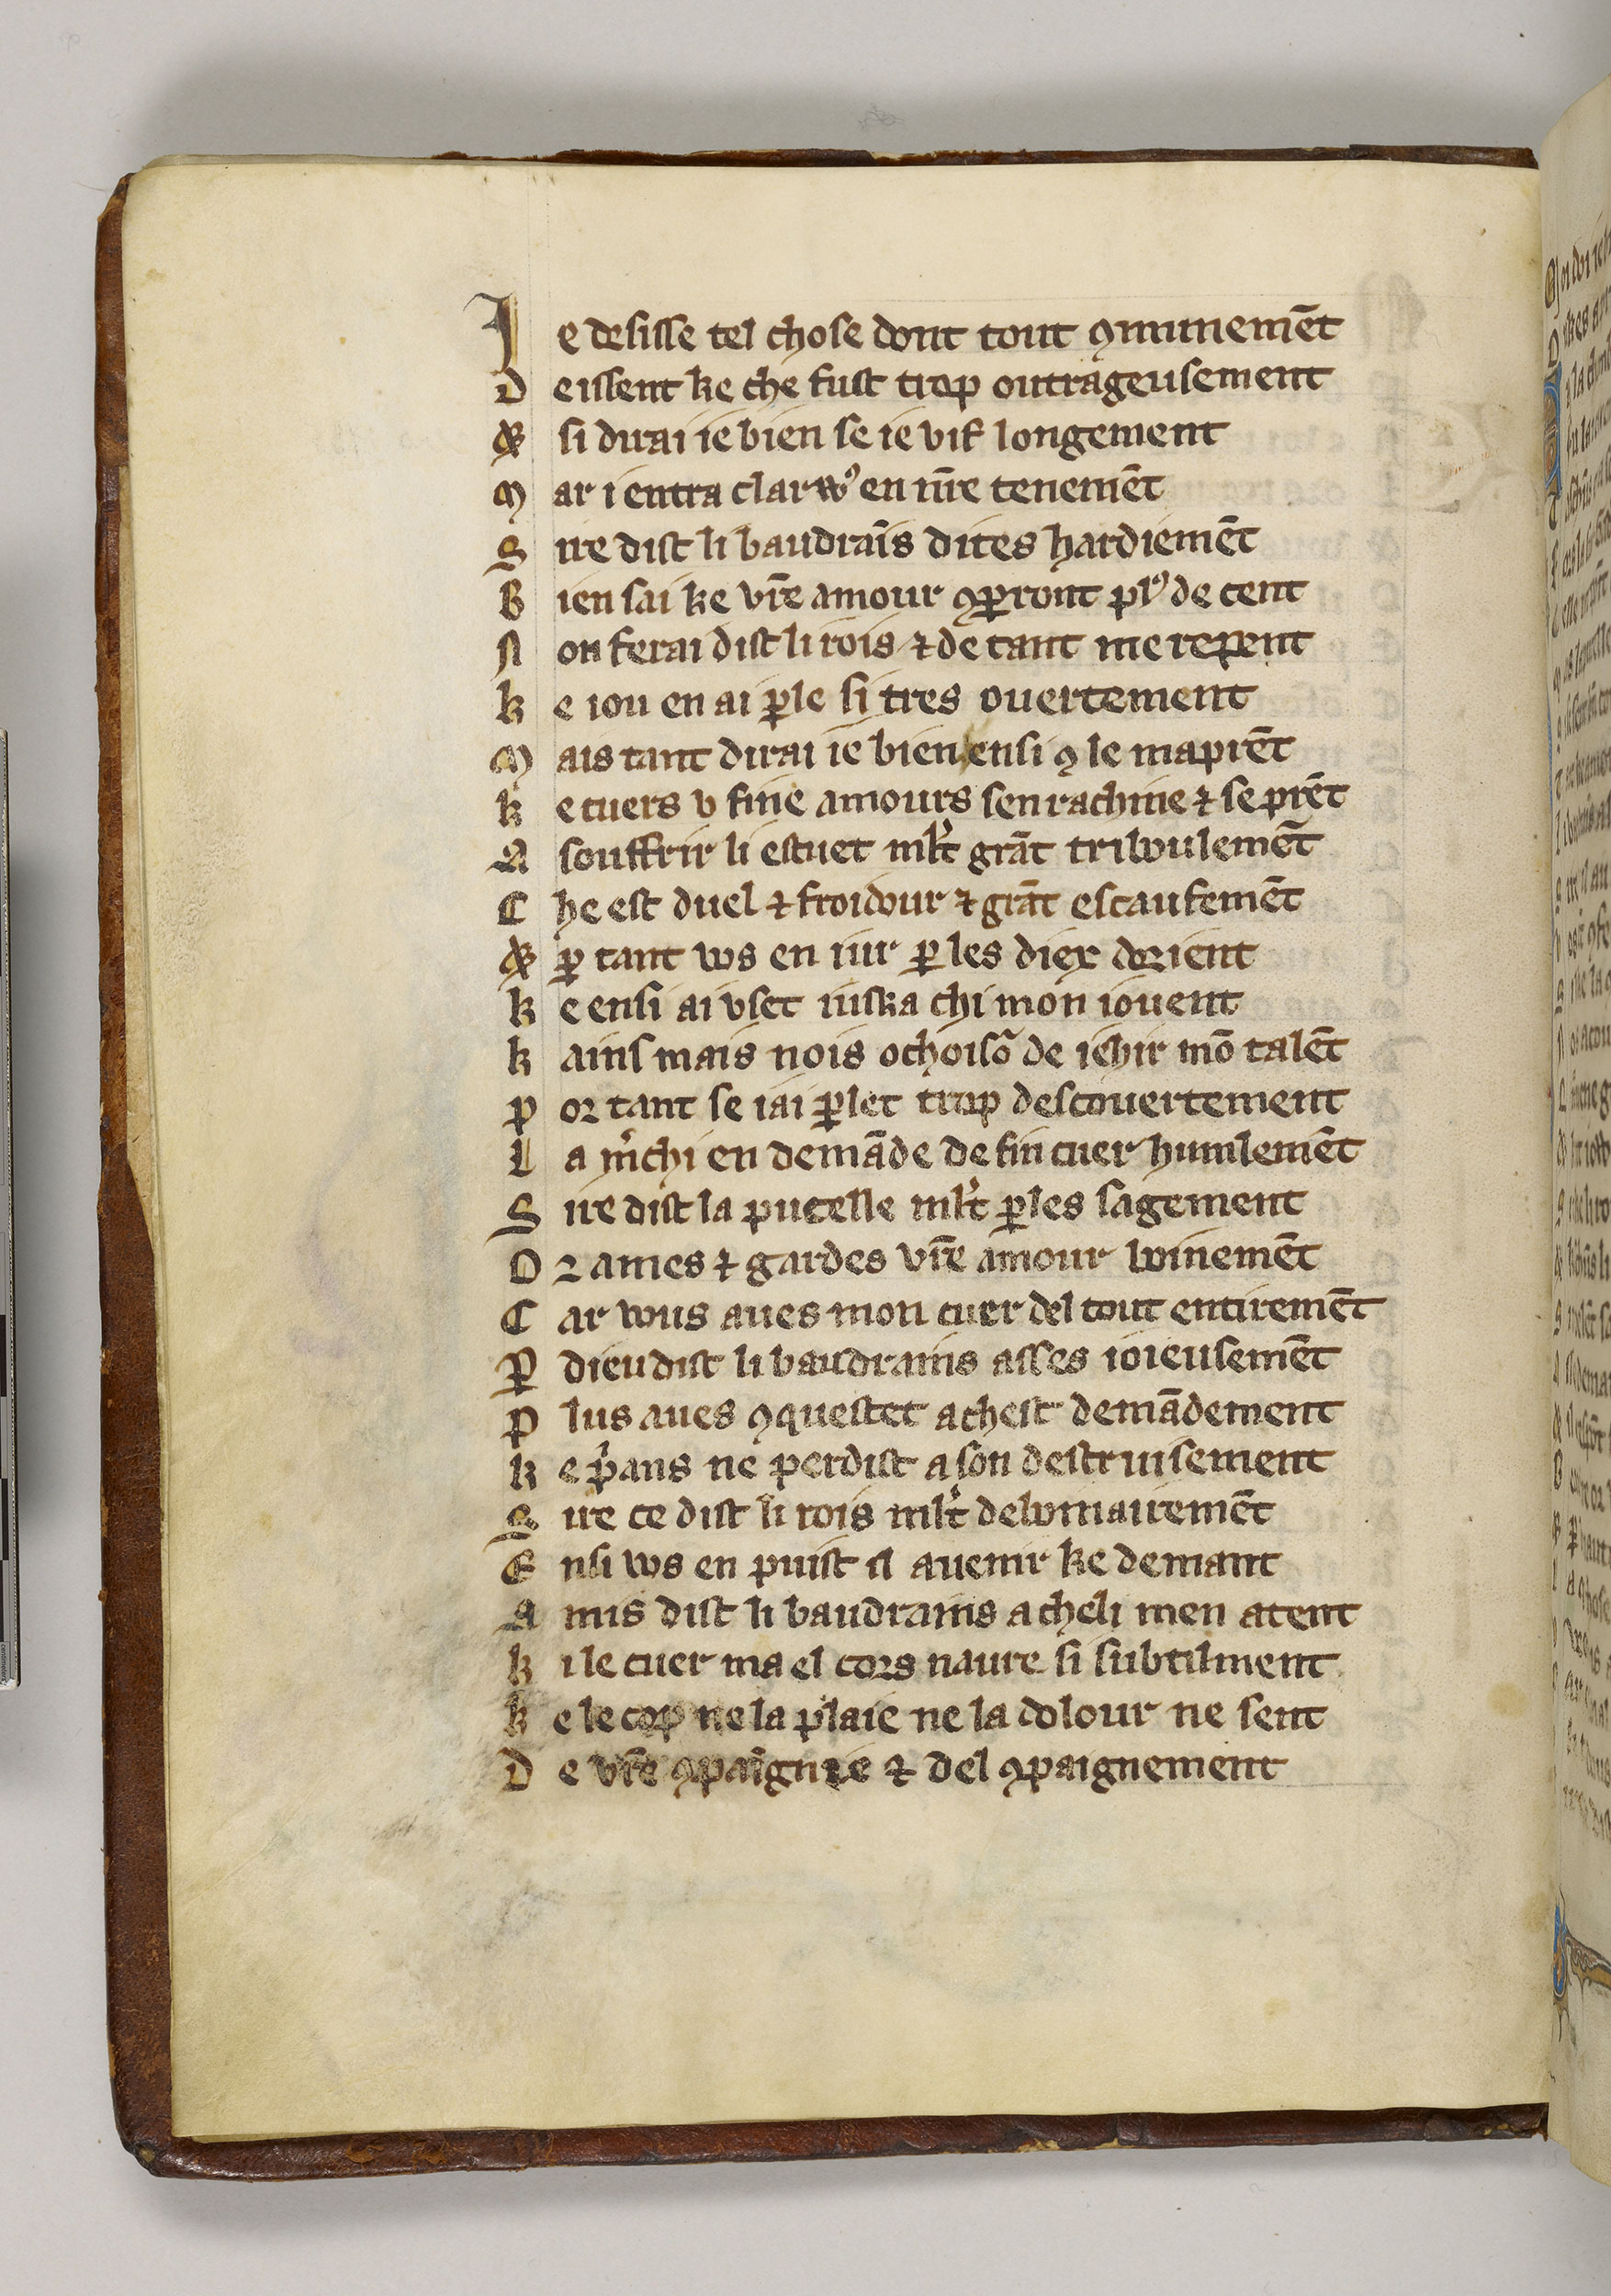 Je desisse tel chose dont tout ꝯmunemēt
Deissent ke che fust trop outrageusement
⁊ si dirai ie bien se ie vif longement
Mar i entra clarvꝰ en nr̄e tenemēt
Sire dist li baudrains dites hardiemēt
Bien sai ke vr̄e amour ꝯꝑront plꝰ de cent
Non ferai dist li rois ⁊ de tant me repent
Ke iou en ai ꝑle si tres ouertement
Mais tant dirai ie bien ensi ꝯ le maprēt
Ke cuers v fine amours senrachine ⁊ se prēt
A souffrir li estuet ml̓t grāt triboulemēt
Che est duel ⁊ froidour ⁊ grāt escaufemēt
⁊ ꝑ tant vos en iur ꝑ les diex dorient
Ke ensi ai vset iuska chi mon iouent
Kains mais nois ochoisō de iehir mō talēt
Por tant se iai ꝑlet trop descouertement
La m̓chi en demāde de fin cuer humlemēt
Sire dist la pucelle ml̓t ꝑles sagement
Or ames ⁊ gardes vr̄e amour boinemēt
Car vous aues mon cuer del tout entiremēt
Ꝑ dieu dist li baudrains asses ioieusemēt
Plus aues ꝯquestet a chest demādement
Ke p̓aus ne perdist a son destruisement
Sire ce dist li rois ml̓t debonairemēt
Ensi vos en puist il auenir ke demant
Amis dist li baudrains a cheli men atent
Ki le cuer ma el cors naure si subtilment
Ke le cop ne la plaie ne la dolour ne sent
De vr̄e ꝯpaignie ⁊ del ꝯpaignement